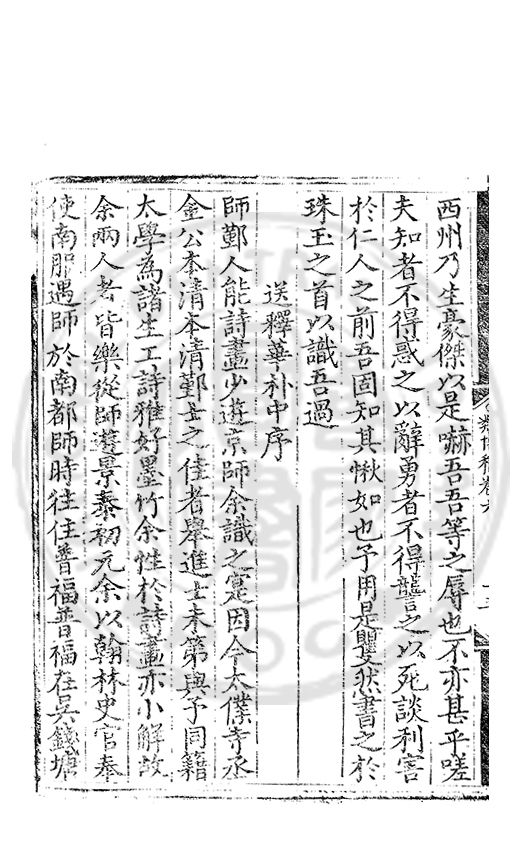 西州乃生豪傑以是嚇吾吾等之辱也不亦甚乎嗟
夫知者不得惑之以辭勇者不得讋之以死談利害
於仁人之前吾固知其愀如也予用是瞿然書之於
珠玉之首以識吾過
送釋華朴中序
師鄞人能詩畫少遊京師余識之寔因今太僕寺丞
金公本清本清鄞士之佳者舉進士未第與予同籍
太學為諸生工詩雅好墨竹余性於詩畫亦小解故
余兩人者皆樂從師遊景泰初元余以翰林史官奉
使南服遇師於南都師時往住普福普福在吳錢塘